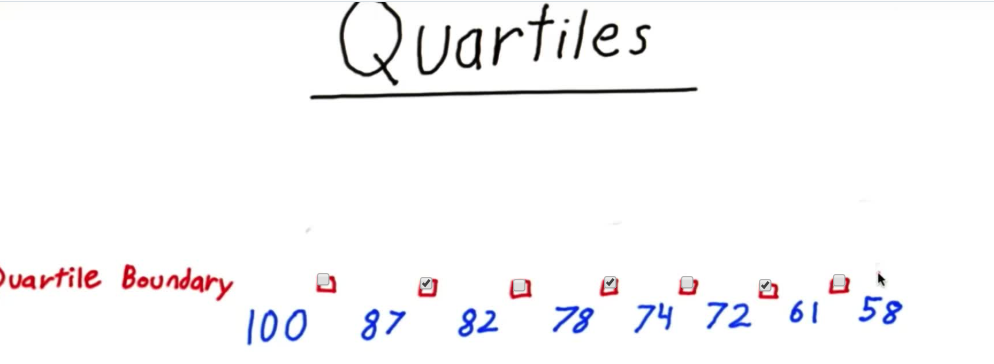 Quartiles
Quartile Boundary
100 87 82 78 74 72 61 58